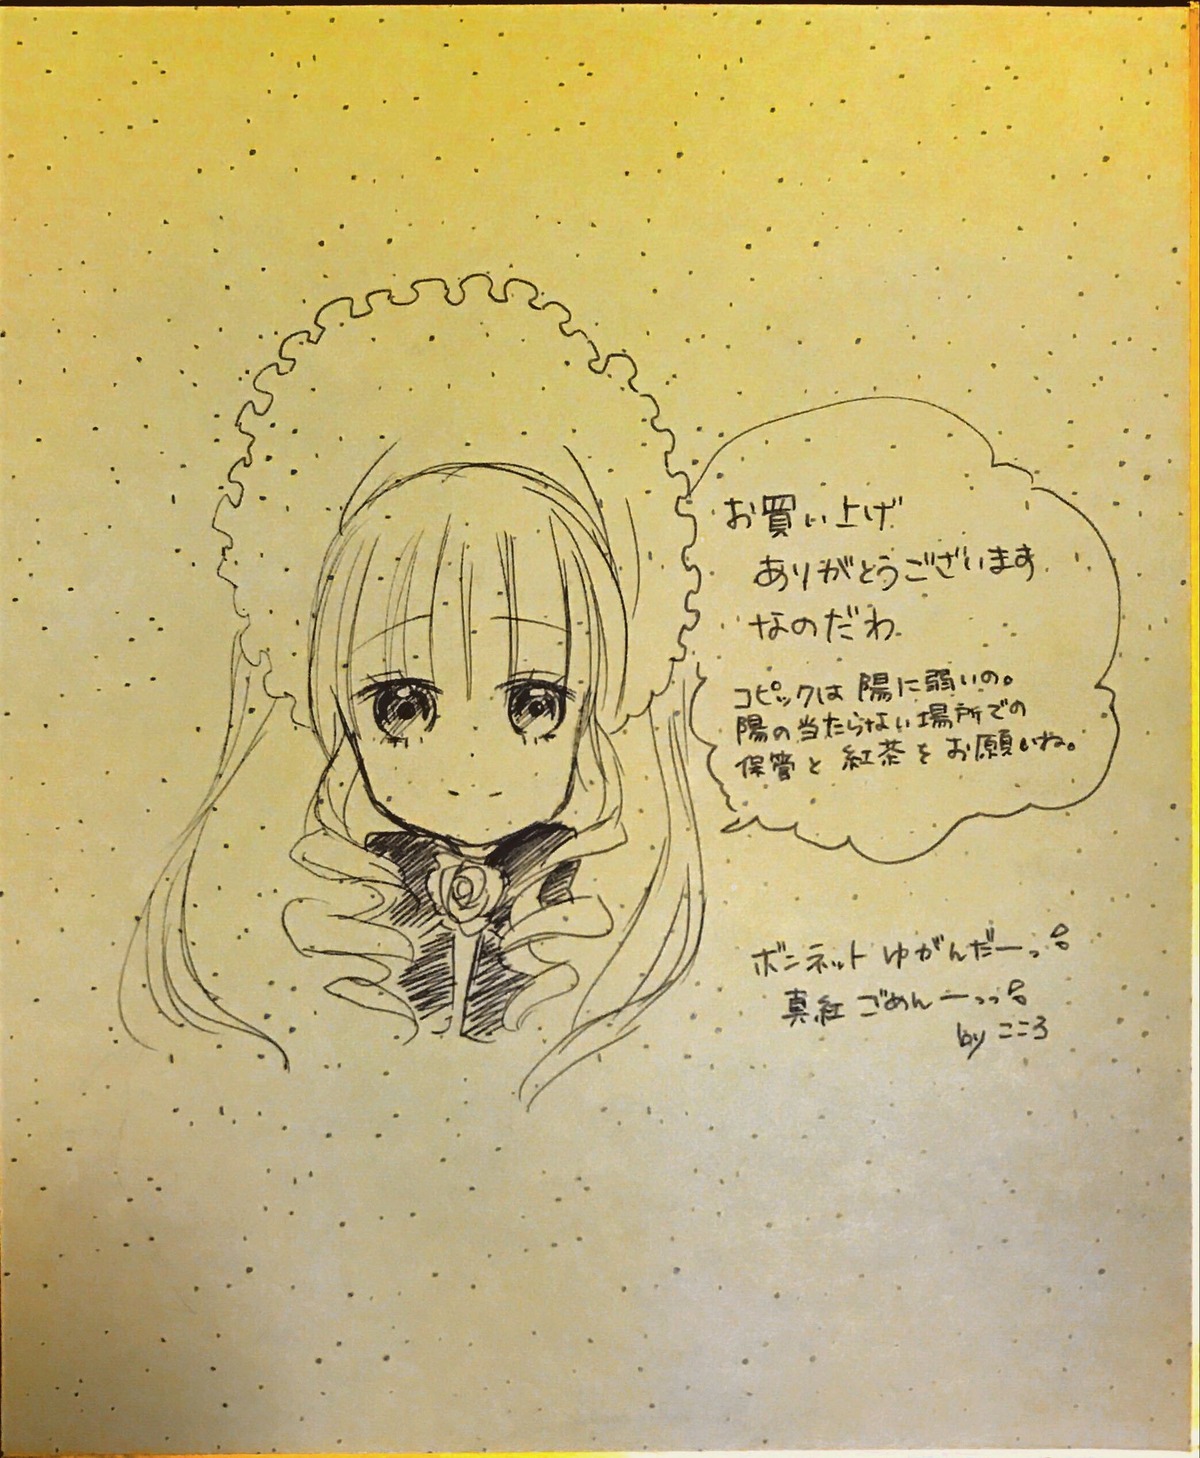 お買い上げ
ありがとうございます
なのだわ
コピックは陽に弱いの。
陽の当たらない場所での
保管と紅茶をお願いね。
ボンネットゆがんだーっ
真紅ごめんーっっ
by こころ